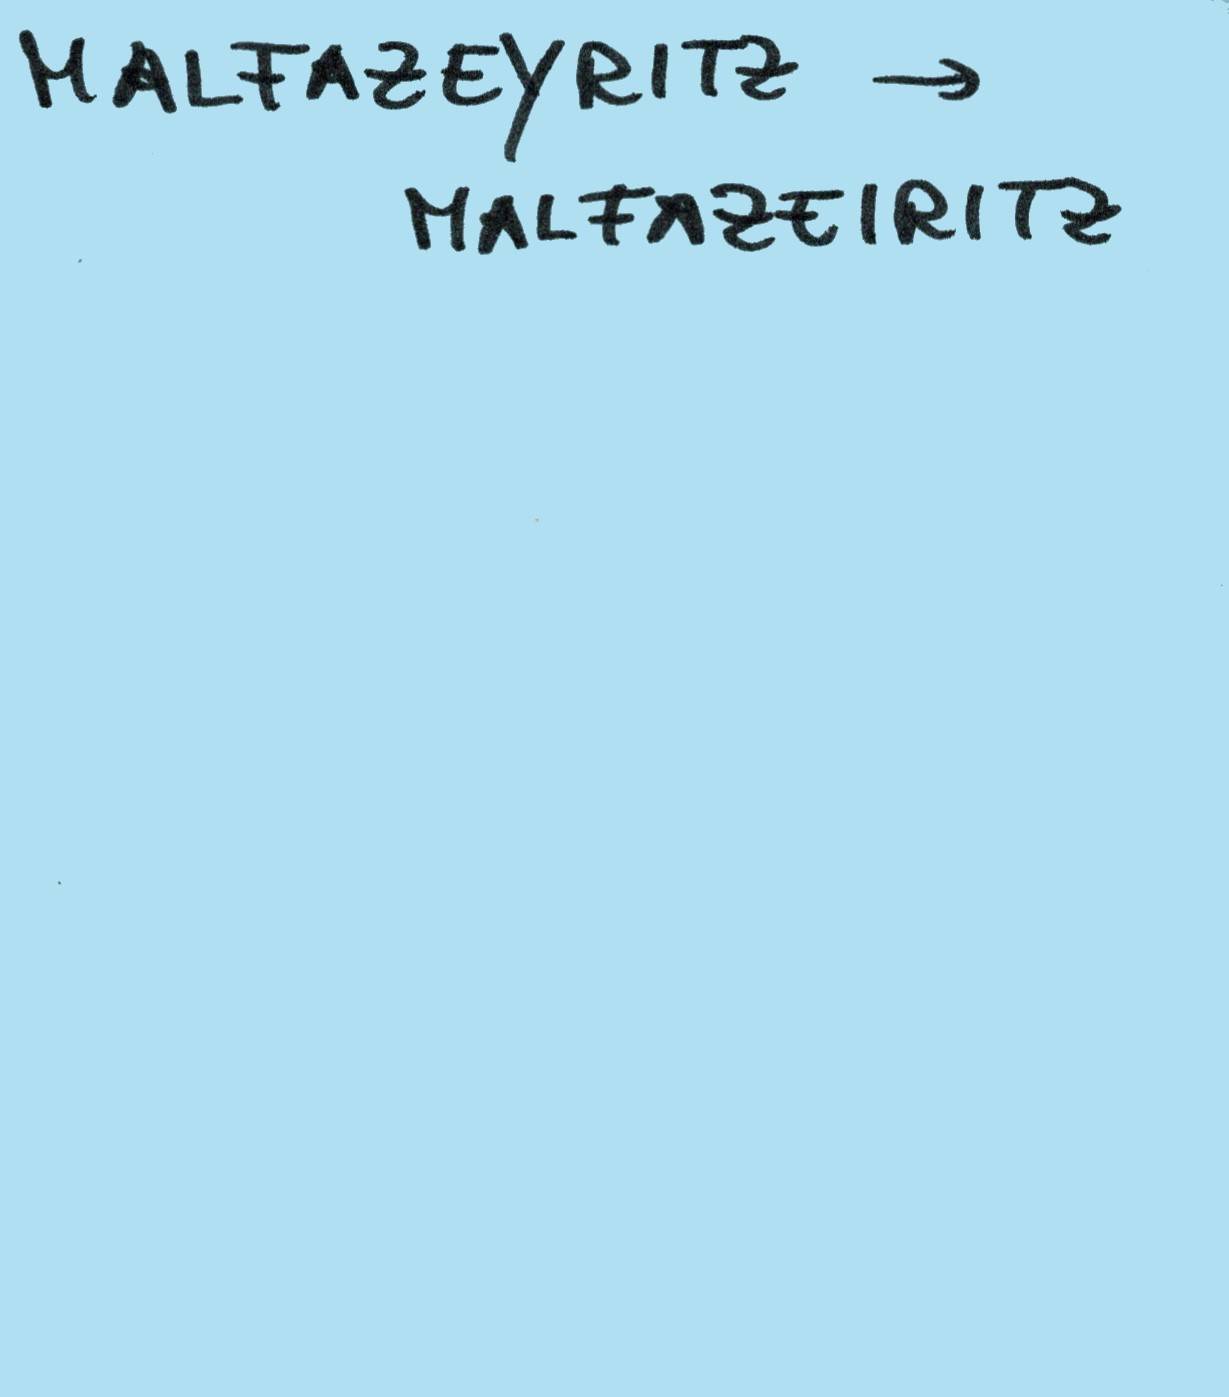 MALFAZEYRITZ →
MALFAZEIRITZ